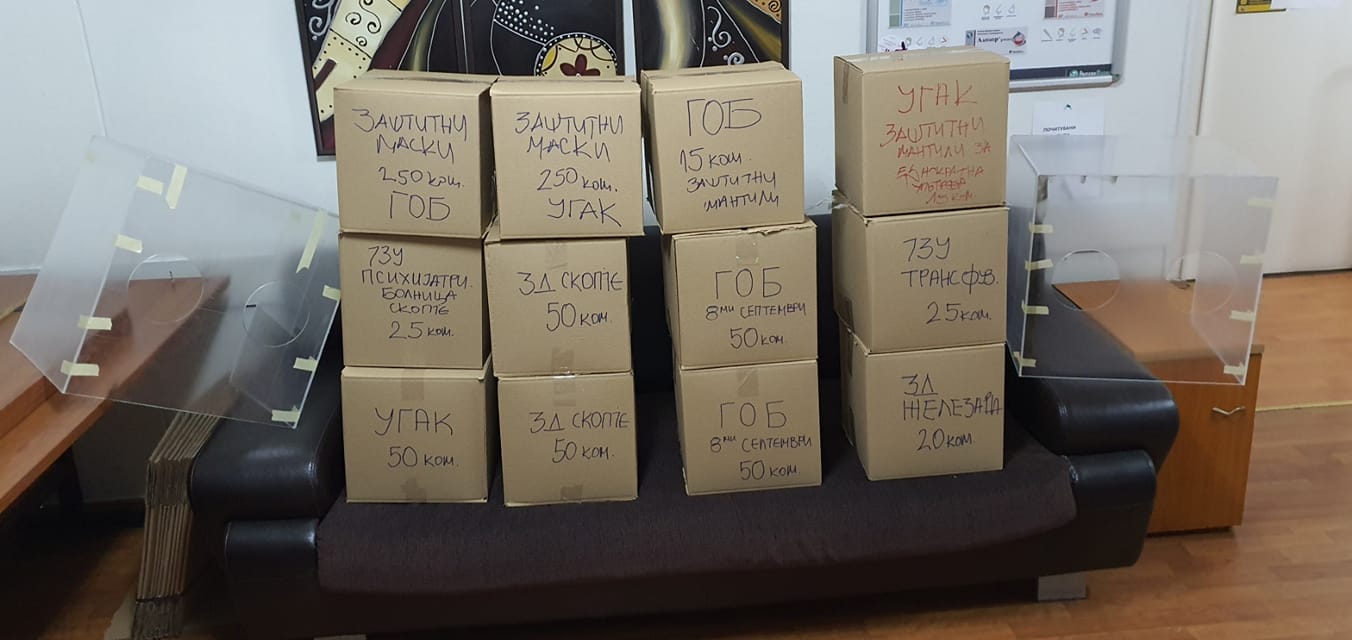 ЗАШТИТНИ
МАСКИ
250 ком.
ГОБ
ЗАШТИТНИ
МАСКИ
250 ком.
УГАК
ГОБ
15 ком.
ЗАШТИТНИ
МАНТИЛИ
УГАК
ЗАШТИТНИ
МАНТИЛИ ЗА
ЕДНОКРАТНА
УПОТРЕБА
15 ком.
ЈЗУ
ПСИХИЈАТРИ.
БОЛНИЦА
СКОПЈЕ
25 ком.
ЗД СКОПЈЕ
50 ком.
ГОБ
8ми СЕПТЕМВРИ
50 ком.
ЈЗУ
ТРАНСФУЗ.
25 ком.
УГАК
50 ком.
ЗД СКОПЈЕ
50 ком.
ГОБ
8ми СЕПТЕМВРИ
50 ком.
ЗД
ЖЕЛЕЗАРА
20 ком.
ПОЧИТУВАНИ